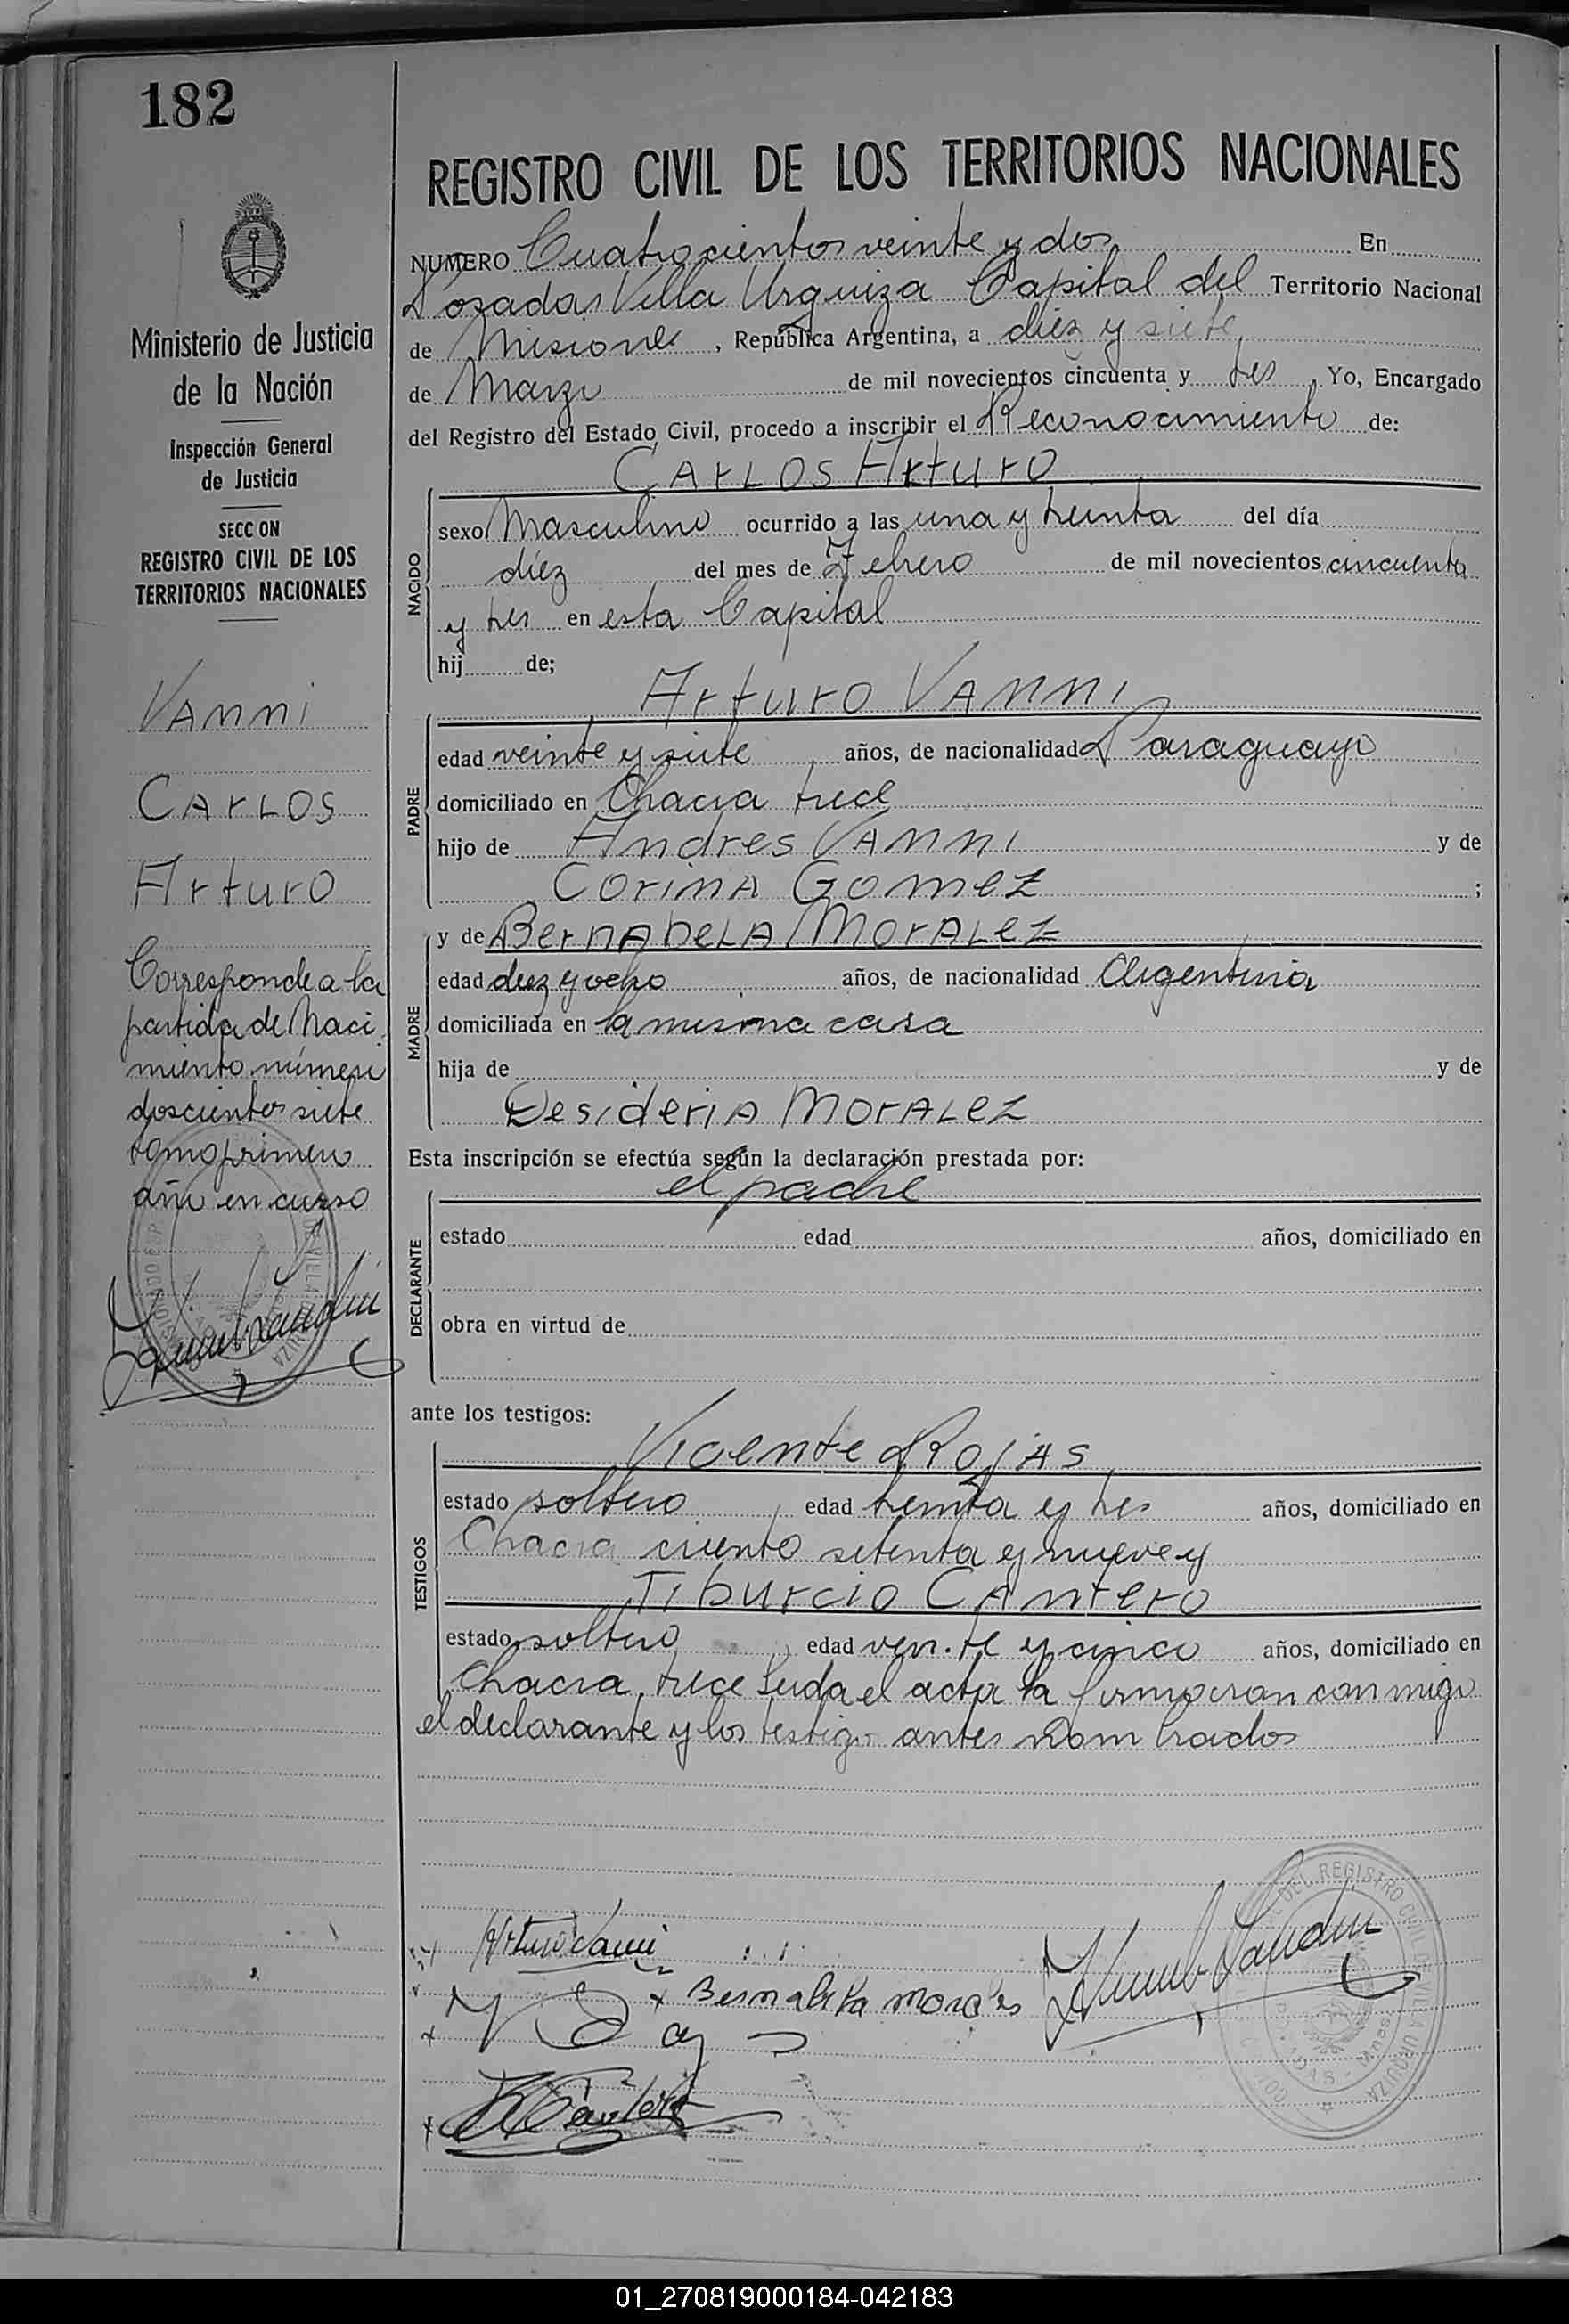 182
Ministerio de Justicia
de la Nación
Inspección General
de Justicia
SECC ON
REGISTRO CIVIL DE LOS
TERRITORIOS NACIONALES
VANNI
CARLOS
Arturo
Corresponde a la
partida de Naci
miento número
doscientos siete
tomo primero
año en curso
REGISTRO CIVIL DE LOS TERRITORIOS NACIONALES
NUMERO Cuatrocientos veinte y dos En
Posadas Villa Urquiza Capital del Territorio Nacional
de Misiones, República Argentina, a diez y siete
de Marzo de mil novecientos cincuenta y tres Yo, Encargado
del Registro del Estado Civil, procedo a inscribir el Reconocimiento de:
CARLOS Arturo
NACIDO
sexo Masculino ocurrido a las una y treinta del día
diez del mes de Febrero de mil novecientos cincuenta
y tres en esta Capital
hij de;
Arturo VANNI
PADRE
edad veinte y siete años, de nacionalidad Paraguayo
domiciliado en Chacra trece
hijo de Andres VANNI y de
Corina Gomez ;
y de Bernabela Moralez
MADRE
edad diez y ocho años, de nacionalidad Argentina
domiciliada en la misma casa
hija de y de
Desideria Moralez
Esta inscripción se efectúa según la declaración prestada por:
el padre
DECLARANTE
estado edad años, domiciliado en
obra en virtud de
ante los testigos:
Vicente Rojas
TESTIGOS
estado soltero edad treinta y tres años, domiciliado en
Chacra ciento setenta y nueve y
Tiburcio Cantero
estado soltero edad veinte y cinco años, domiciliado en
Chacra trece Leida el acta la firmaran conmigo
el declarante y los testigo antes nombrados
Arturo Vanni
x Bernabela Morales
DEL REGISTRO CIVIL DE VILLA URQUIZA
01_270819000184-042183